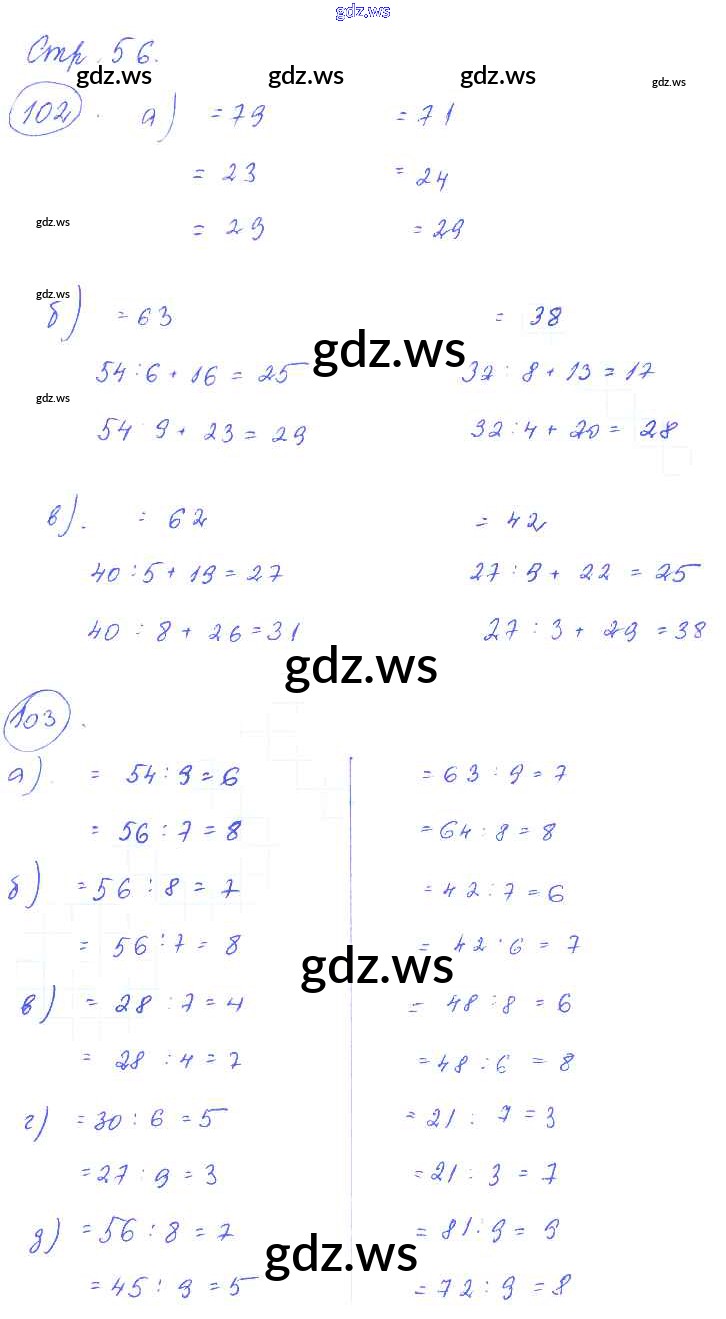 gdz.ws
Стр. 56.
gdz.ws gdz.ws gdz.ws gdz.ws
102. а) = 79 = 71
= 23 = 24
gdz.ws = 29 = 29
gdz.ws
б) = 63 = 38
gdz.ws
54 : 6 + 16 = 25 32 : 8 + 13 = 17
gdz.ws
54 9 + 23 = 29 32 : 4 + 20 = 28
в). = 62 = 42
40 : 5 + 19 = 27 27 : 9 + 22 = 25
40 : 8 + 26 = 31 27 : 3 + 29 = 38
gdz.ws
103.
а). = 54 : 9 = 6 = 63 : 9 = 7
= 56 : 7 = 8 = 64 : 8 = 8
б) = 56 : 8 = 7 = 42 : 7 = 6
= 56 : 7 = 8 = 42 : 6 = 7
gdz.ws
в) = 28 : 7 = 4 = 48 : 8 = 6
= 28 : 4 = 7 = 48 : 6 = 8
г) = 30 : 6 = 5 = 21 : 7 = 3
= 27 : 9 = 3 = 21 : 3 = 7
д) = 56 : 8 = 7 = 81 : 9 = 9
gdz.ws
= 45 : 9 = 5 = 72 : 9 = 8